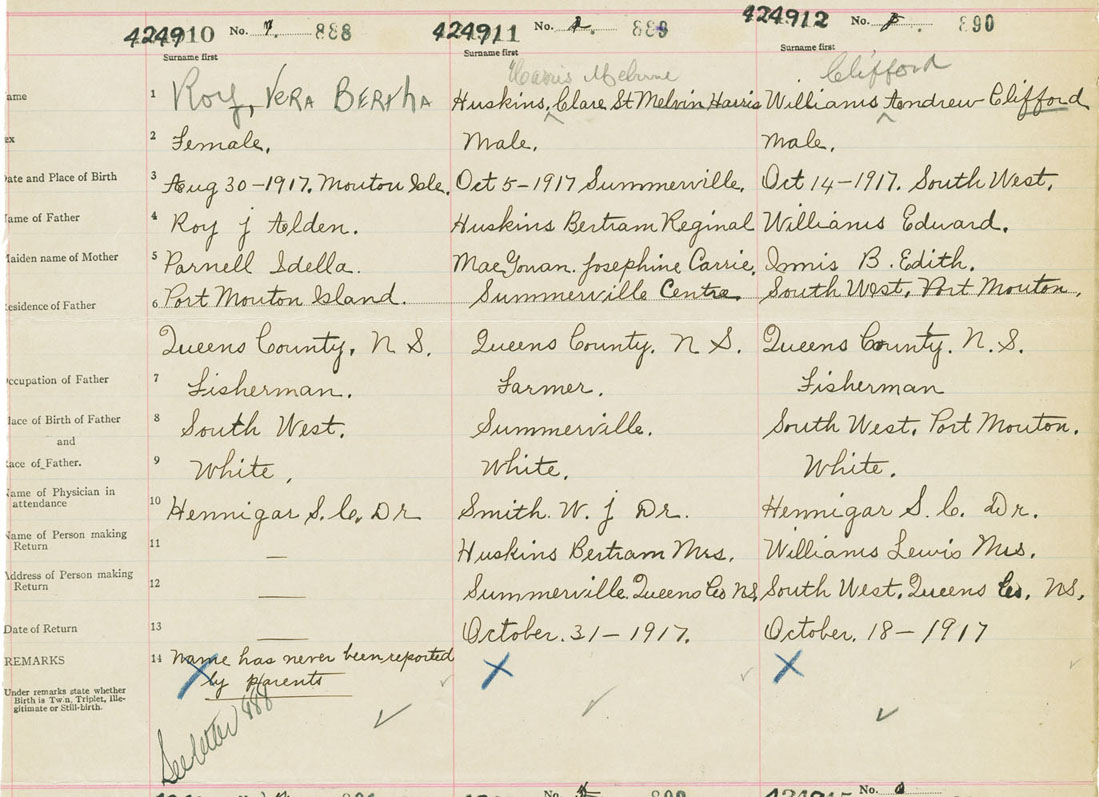 424910 No. 7. 888
424911 No. 889
424912 No. 890
Surname first
Surname first
Surname first
Harris Melvine
Clifford
ame 1 Roy, VERA BERTHA
Huskins, Clare St Melvin Harris
Williams Andrew Clifford
ex 2 Female.
Male.
Male.
Date and Place of Birth 3 Aug 30-1917. Mouton Isle.
Oct 5-1917 Summerville.
Oct 14-1917. South West.
Name of Father 4 Roy J Alden.
Huskins Bertram Reginal
Williams Edward.
Maiden name of Mother 5 Parnell Idella.
MacGowan. Josephine Carrie.
Innis B. Edith.
Residence of Father 6 Port Mouton Island.
Summerville Centre
South West, Port Mouton.
Queens County, N S.
Queens County. N S.
Queens County. N.S.
Occupation of Father 7 Fisherman.
Farmer.
Fisherman
lace of Birth of Father 8 South West.
Summerville.
South West, Port Mouton.
and
Race of Father. 9 White,
White,
White.
Name of Physician in
attendance 10 Hennigar S. C. Dr
Smith. W. J Dr.
Hennigar S. C. Dr.
Name of Person making
Return 11 —
Huskins Bertram Mrs.
Williams Lewis Mrs.
Address of Person making
Return 12 —
Summerville. Queens Co N.S.
South West, Queens Co. NS.
Date of Return 13 —
October. 31-1917.
October. 18-1917
REMARKS 14 name has never been reported
by parents
Under remarks state whether
Birth is Twin, Triplet, Ille-
gitimate or Still-birth.
See letter 888
No.
No.
No.